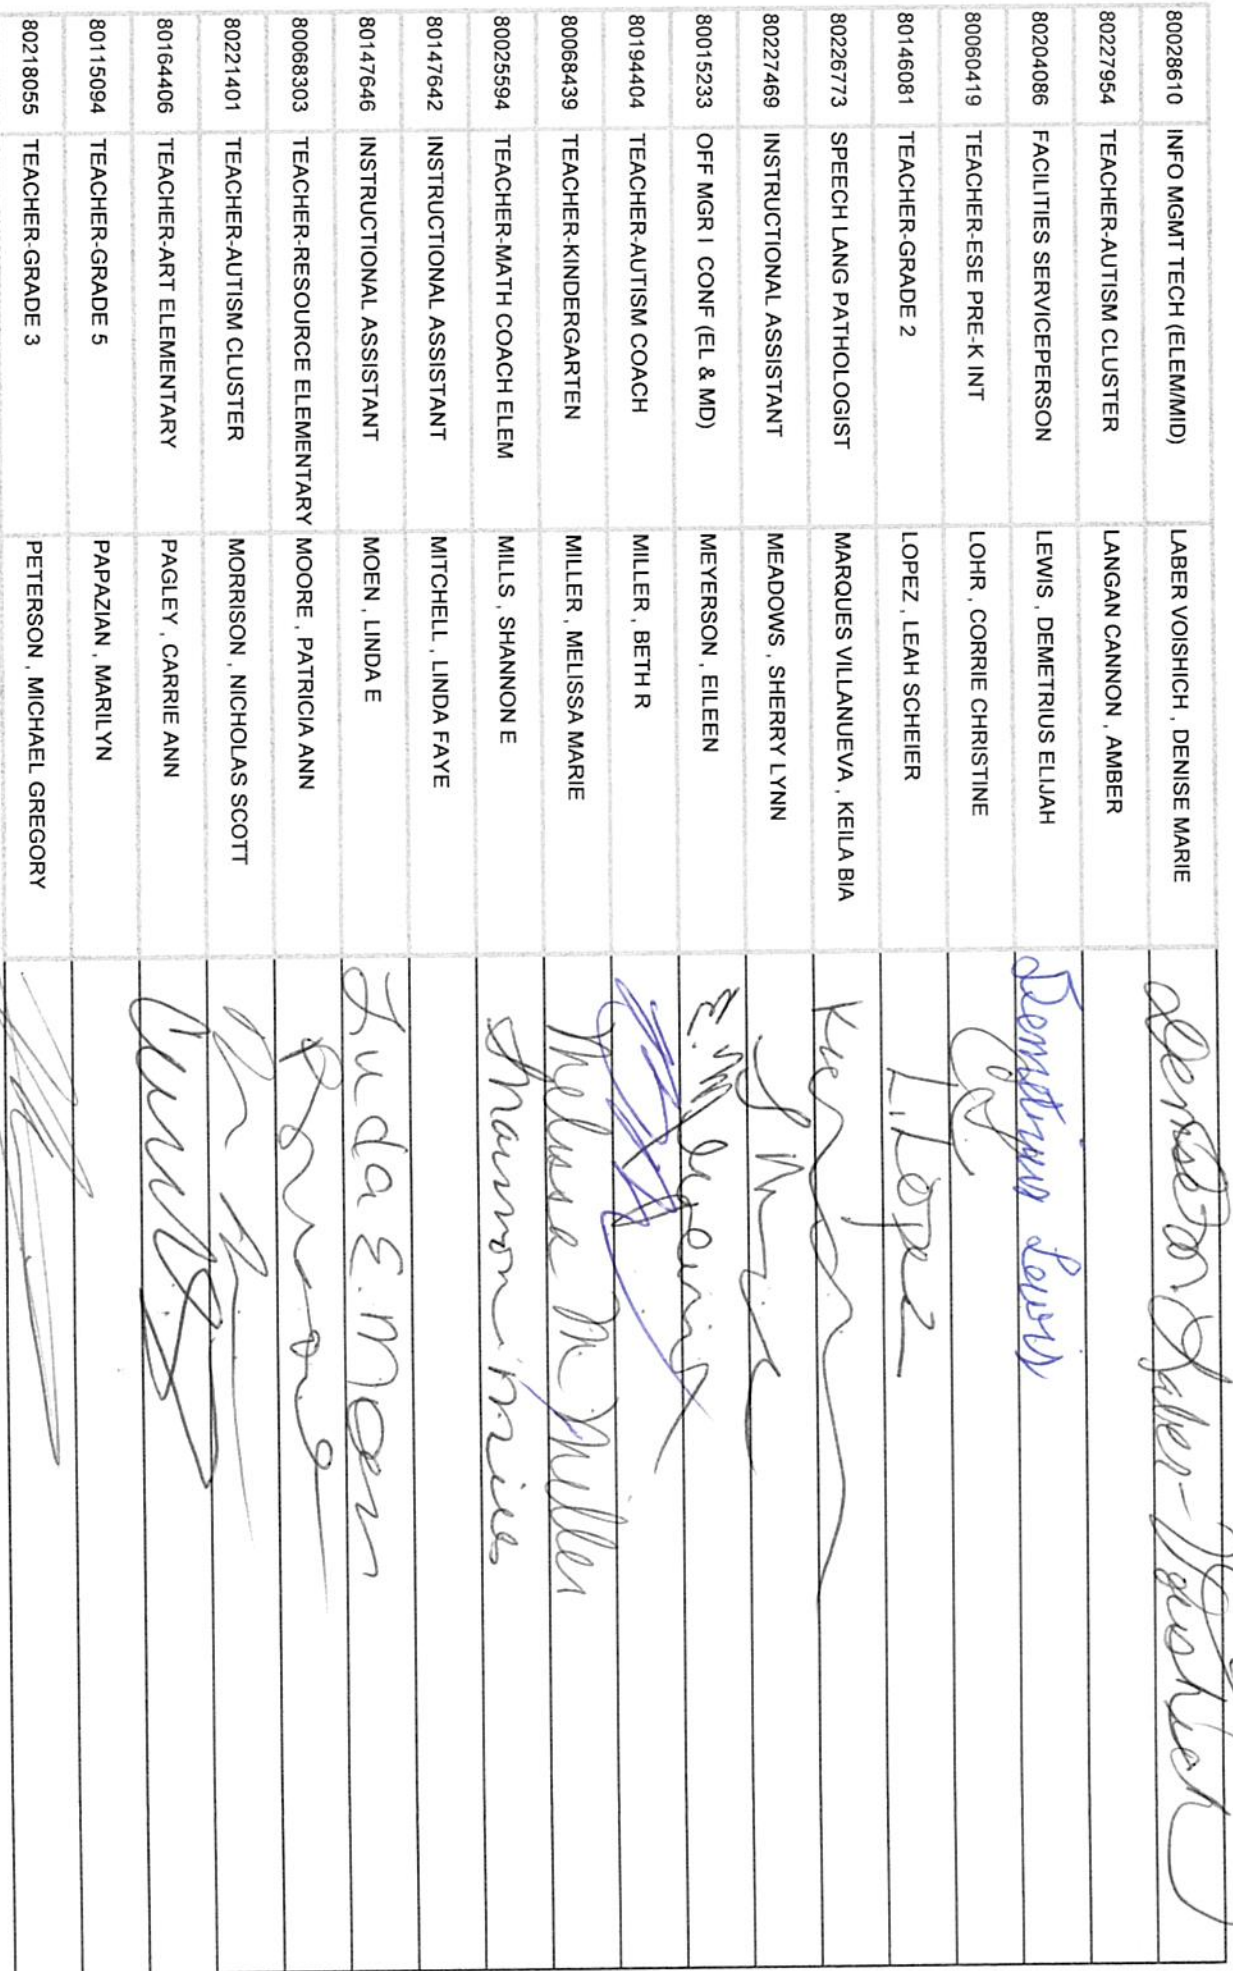 80028610 INFO MGMT TECH (ELEM/MID) LABER VOISHICH , DENISE MARIE Denise M Laber-Voishich
80227954 TEACHER-AUTISM CLUSTER LANGAN CANNON , AMBER
80204086 FACILITIES SERVICEPERSON LEWIS , DEMETRIUS ELIJAH Demetrius Lewis
80060419 TEACHER-ESE PRE-K INT LOHR , CORRIE CHRISTINE
80146081 TEACHER-GRADE 2 LOPEZ , LEAH SCHEIER L. Lopez
80226773 SPEECH LANG PATHOLOGIST MARQUES VILLANUEVA , KEILA BIA
80227469 INSTRUCTIONAL ASSISTANT MEADOWS , SHERRY LYNN
80015233 OFF MGR I CONF (EL & MD) MEYERSON , EILEEN E. Meyerson
80194404 TEACHER-AUTISM COACH MILLER , BETH R
80068439 TEACHER-KINDERGARTEN MILLER , MELISSA MARIE Melissa M Miller
80025594 TEACHER-MATH COACH ELEM MILLS , SHANNON E Shannon Mills
80147642 INSTRUCTIONAL ASSISTANT MITCHELL , LINDA FAYE
80147646 INSTRUCTIONAL ASSISTANT MOEN , LINDA E Linda E. Moen
80068303 TEACHER-RESOURCE ELEMENTARY MOORE , PATRICIA ANN
80221401 TEACHER-AUTISM CLUSTER MORRISON , NICHOLAS SCOTT
80164406 TEACHER-ART ELEMENTARY PAGLEY , CARRIE ANN
80115094 TEACHER-GRADE 5 PAPAZIAN , MARILYN
80218055 TEACHER-GRADE 3 PETERSON , MICHAEL GREGORY